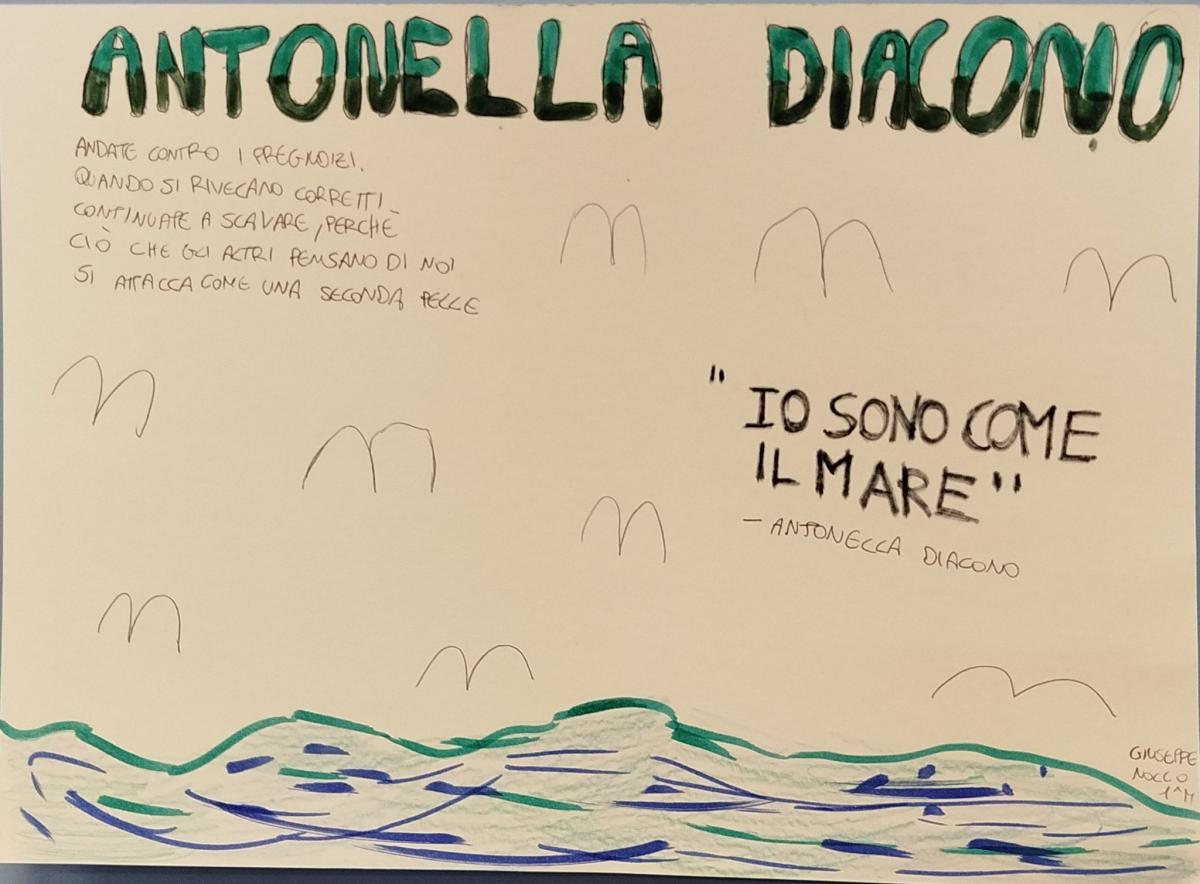 ANTONELLA DIACONO
ANDATE CONTRO I PREGIUDIZI.
QUANDO SI RIVELANO CORRETTI
CONTINUATE A SCAVARE, PERCHÈ
CIÒ CHE GLI ALTRI PENSANO DI NOI
SI ATTACCA COME UNA SECONDA PELLE
"IO SONO COME
IL MARE"
- ANTONELLA DIACONO
GIUSEPPE
NOCCO
1^M